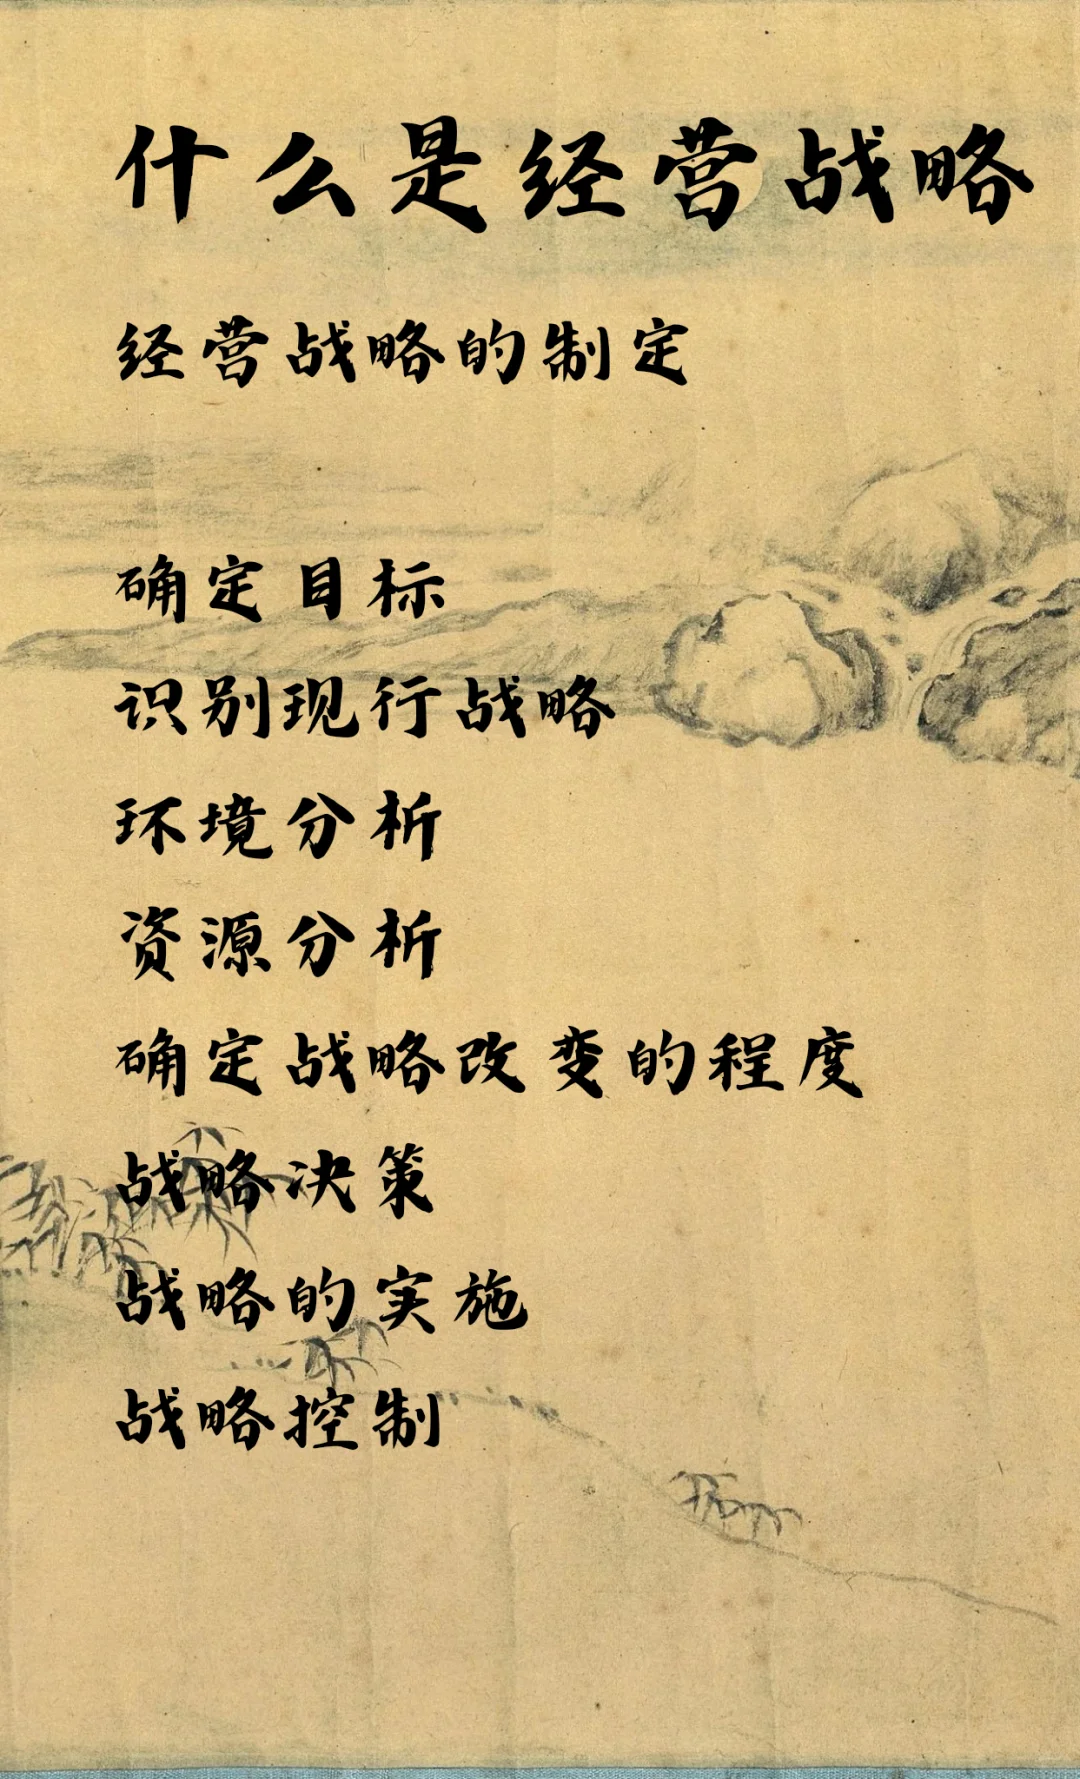 什么是经营战略
经营战略的制定
确定目标
识别现行战略
环境分析
资源分析
确定战略改变的程度
战略决策
战略的实施
战略控制